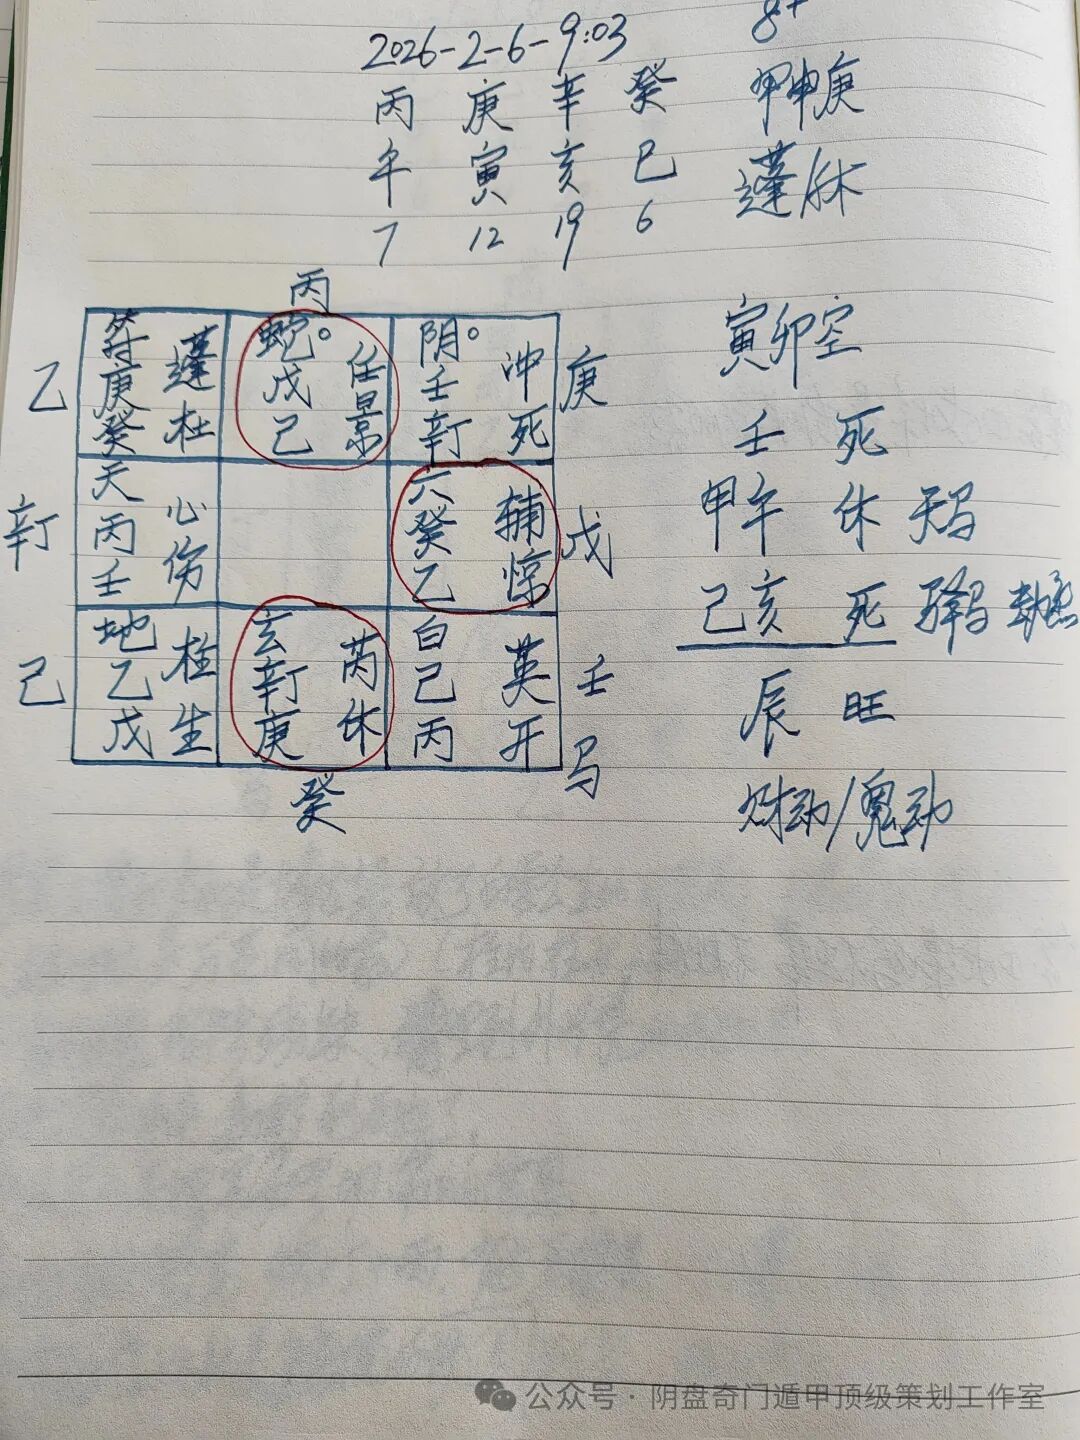 2026-2-6-9:03
8+
丙 庚 辛 癸
甲申庚
午 寅 亥 巳
蓬/休
7 12 19 6
丙
符 蓬
庚
癸 杜
蛇。 任
戊 景
己
阴。 冲
壬
辛丁 死
乙
庚
天 心
丙
壬 伤
六 辅
癸
乙 惊
辛丁
戊
地 柱
乙
戊 生
玄 芮
辛丁
庚 休
白 英
己
丙 开
己
壬
马
癸
寅卯空
壬 死
甲午 休 天马
己亥 死 驿马 劫煞
辰 旺
财动/鬼动
公众号·阴盘奇门遁甲顶级策划工作室